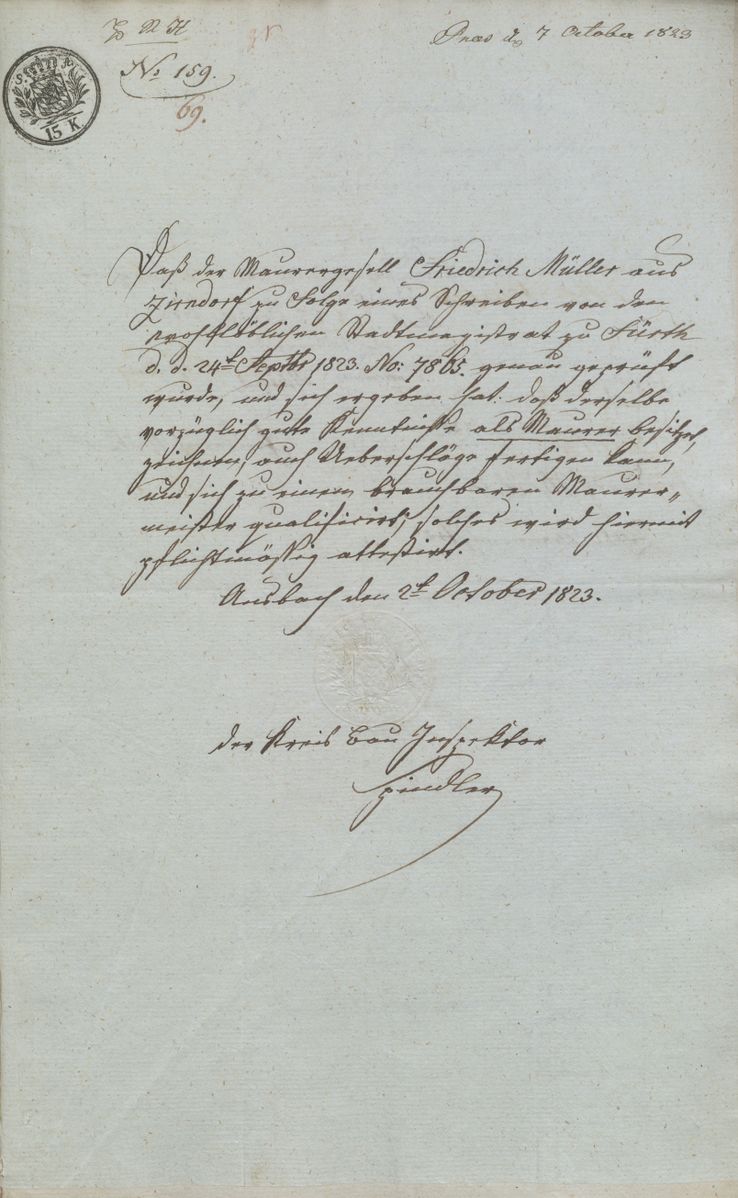 Praes d. 7 October 1823
No. 159.
69.
15 K
Daß der Maurergesell Friedrich Müller aus
Zirndorf zu Folge eines Schreiben von dem
wohllöblichen Stadtmagistrat zu Fürth
d. d. 24t Septbr 1823. No: 7865. genau geprüft
wurde, und sich ergeben hat: daß derselbe
vorzüglich gute Kenntniße als Maurer besitzet,
zeichnen, auch Ueberschläge fertigen kann,
und sich zu einem brauchbaren Maurer„
meister qualificirt; solches wird hiermit
pflichtmäßig attestirt.
Ansbach den 2t October 1823.
der Kreis Bau Inspektor
Spindler